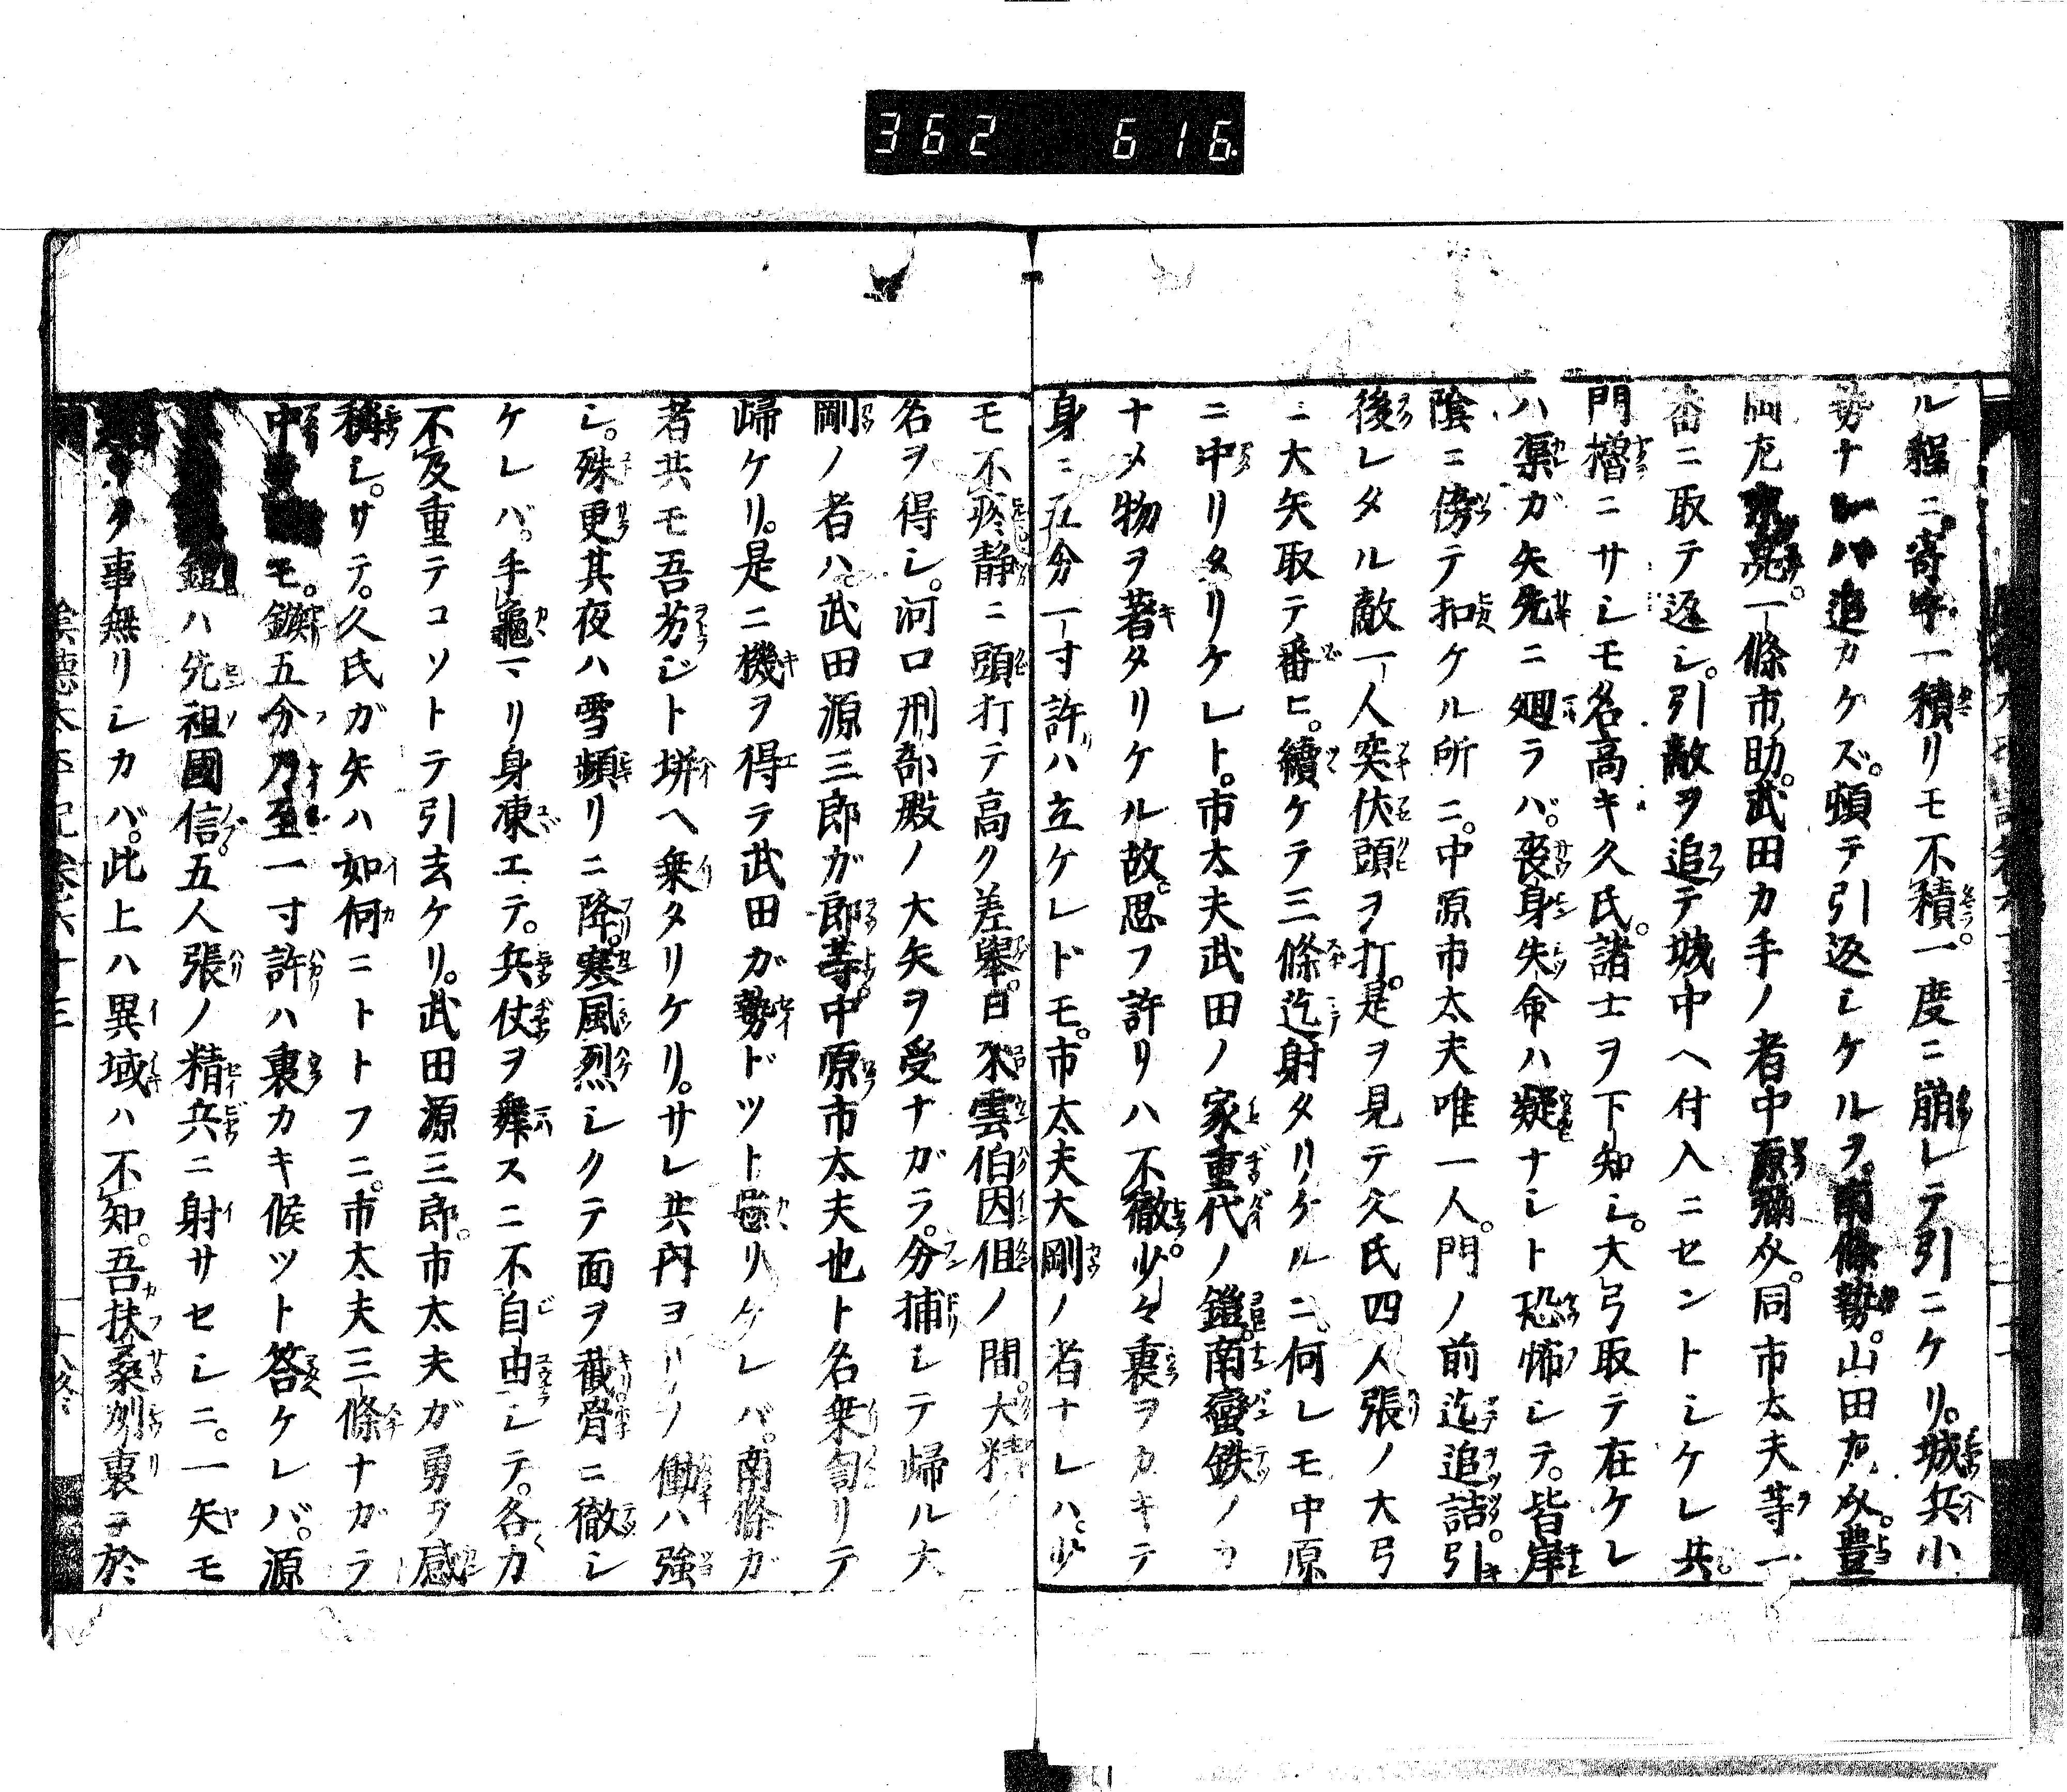 362 616
ル程ニ寄手一積リモ不積一度ニ崩レテ引ニケリ。城兵小
勢ナレハ追カケズ。頓テ引返シケルヲ。南條勢。山田九兵。豊
岡右京亮。一條市助。武田カ手ノ者中原弥兵。同市太夫等一
番ニ取テ返シ。引敵ヲ追テ城中ヘ付入ニセントシケレ共。
門櫓ニサシモ名高キ久氏。諸士ヲ下知シ。大弓取テ在ケレ
ハ渠ガ矢先ニ廻ラバ。喪身失命ハ疑ナシト恐怖シテ。皆岸
陰ニ傍テ扣ケル所ニ。中原市太夫唯一人。門ノ前迄追詰。引
後レタル敵一人突伏頭ヲ打。是ヲ見テ久氏四人張ノ大弓
ニ大矢取テ番ヒ。續ケテ三條迄射タリケルニ。何レモ中原
ニ中リタリケレト。市太夫武田ノ家重代ノ鎧。南蠻鉄ノ
ナメ物ヲ著タリケル故。思フ許リハ不徹。少々裏ヲカキテ
身ニ五分一寸許ハ立ケレドモ。市太夫大剛ノ者ナレハ。少
モ不疼静ニ頭打テ高ク差挙。日来雲伯因但ノ間。大精
名ヲ得シ。河口刑部殿ノ大矢ヲ受ナガラ。分捕シテ歸ル大
剛ノ者ハ。武田源三郎ガ郎等。中原市太夫也ト名乗リテ
歸ケリ。是ニ機ヲ得テ武田ガ勢ドツト懸リケレバ。南條ガ
者共モ吾劣ジト塀ヘ乗タリケリ。サレ共内ヨリノ働ハ強
シ。殊更其夜ハ雪頻リニ降。寒風烈シクテ面ヲ截骨ニ徹シ
ケレバ。手龜マリ身凍エテ。兵仗ヲ舞スニ不自由シテ。各カ
不及重テコソトテ引去ケリ。武田源三郎。市太夫ガ勇ヲ感
稱シ。サテ。久氏ガ矢ハ如何ニトトフニ。市太夫三條ナガラ
中 モ。鏃五分乃至一寸許ハ裏カキ候ツト答ケレバ。源
鎧ハ先祖國信。五人張ノ精兵ニ射サセシニ。一矢モ
タ事無リシカバ。此上ハ異域ハ不知。吾扶桑刕裏ニ於